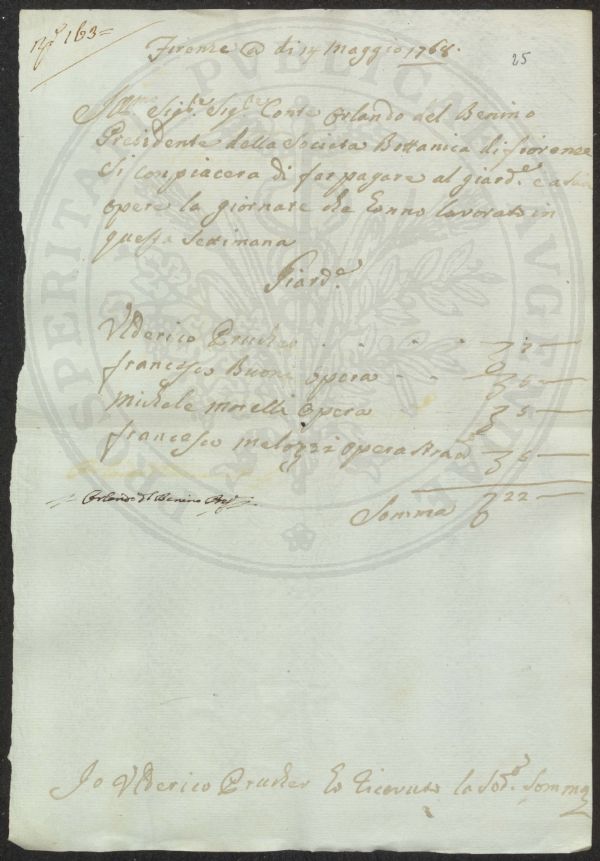 N.º 163=
Firenze a di 14 Maggio 1768.
25
Ill.mo Sig.re Sig.re Conte Orlando del Benino
Presidente della Societa Bottanica di fiorenza
Si conpiacera di far pagare al giard.e e a sua
opere la giornate che Eonno lavorato in
questa Settimana
Giard.e
Vlderico Prucker . . . . 7 —
francesco Buoni opera . . 5 —
Michele Morelli opera 5 —
francesco Melozzi opera 5 —
Somma 22 —
Orlando del Benino
Jo Vlderico Prucker Eo ricevuto la Sod.a Somma
PROSPERITATI PVBLICAE AVGENDAE